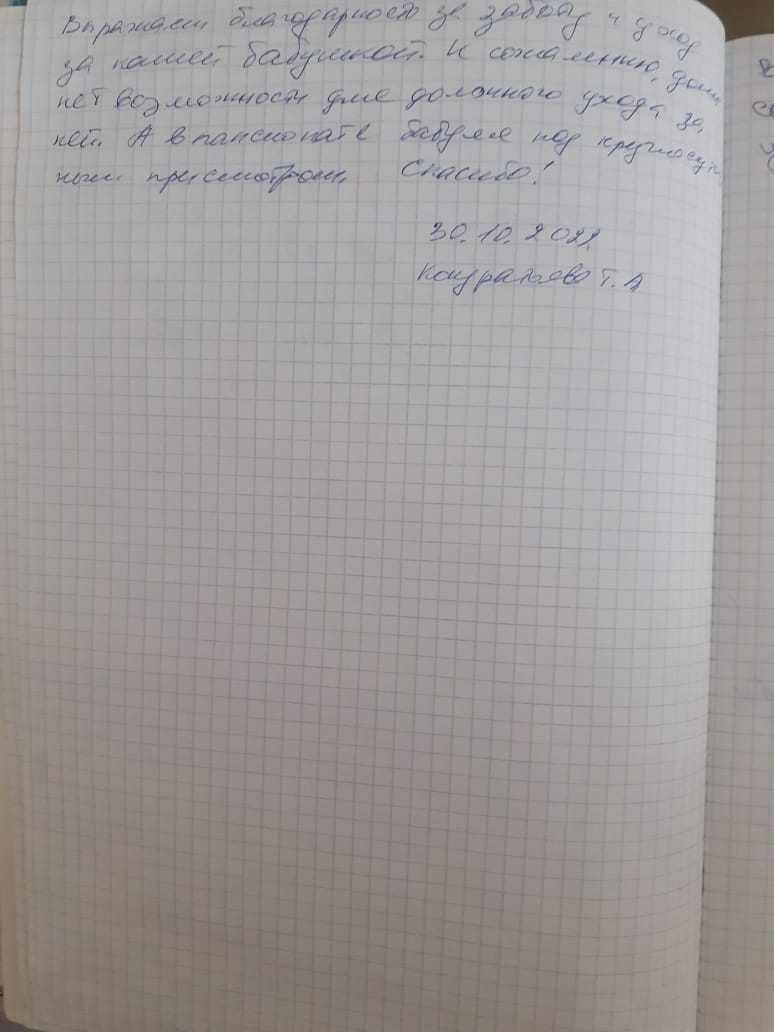 Выражаем благодарность за заботу и уход
за нашей бабушкой. К сожалению, дома
нет возможности для должного ухода за
ней. А в пансионате бабуля под круглосуточ
ным присмотром. Спасибо!
30.10.2022
Кондратьева Т.А